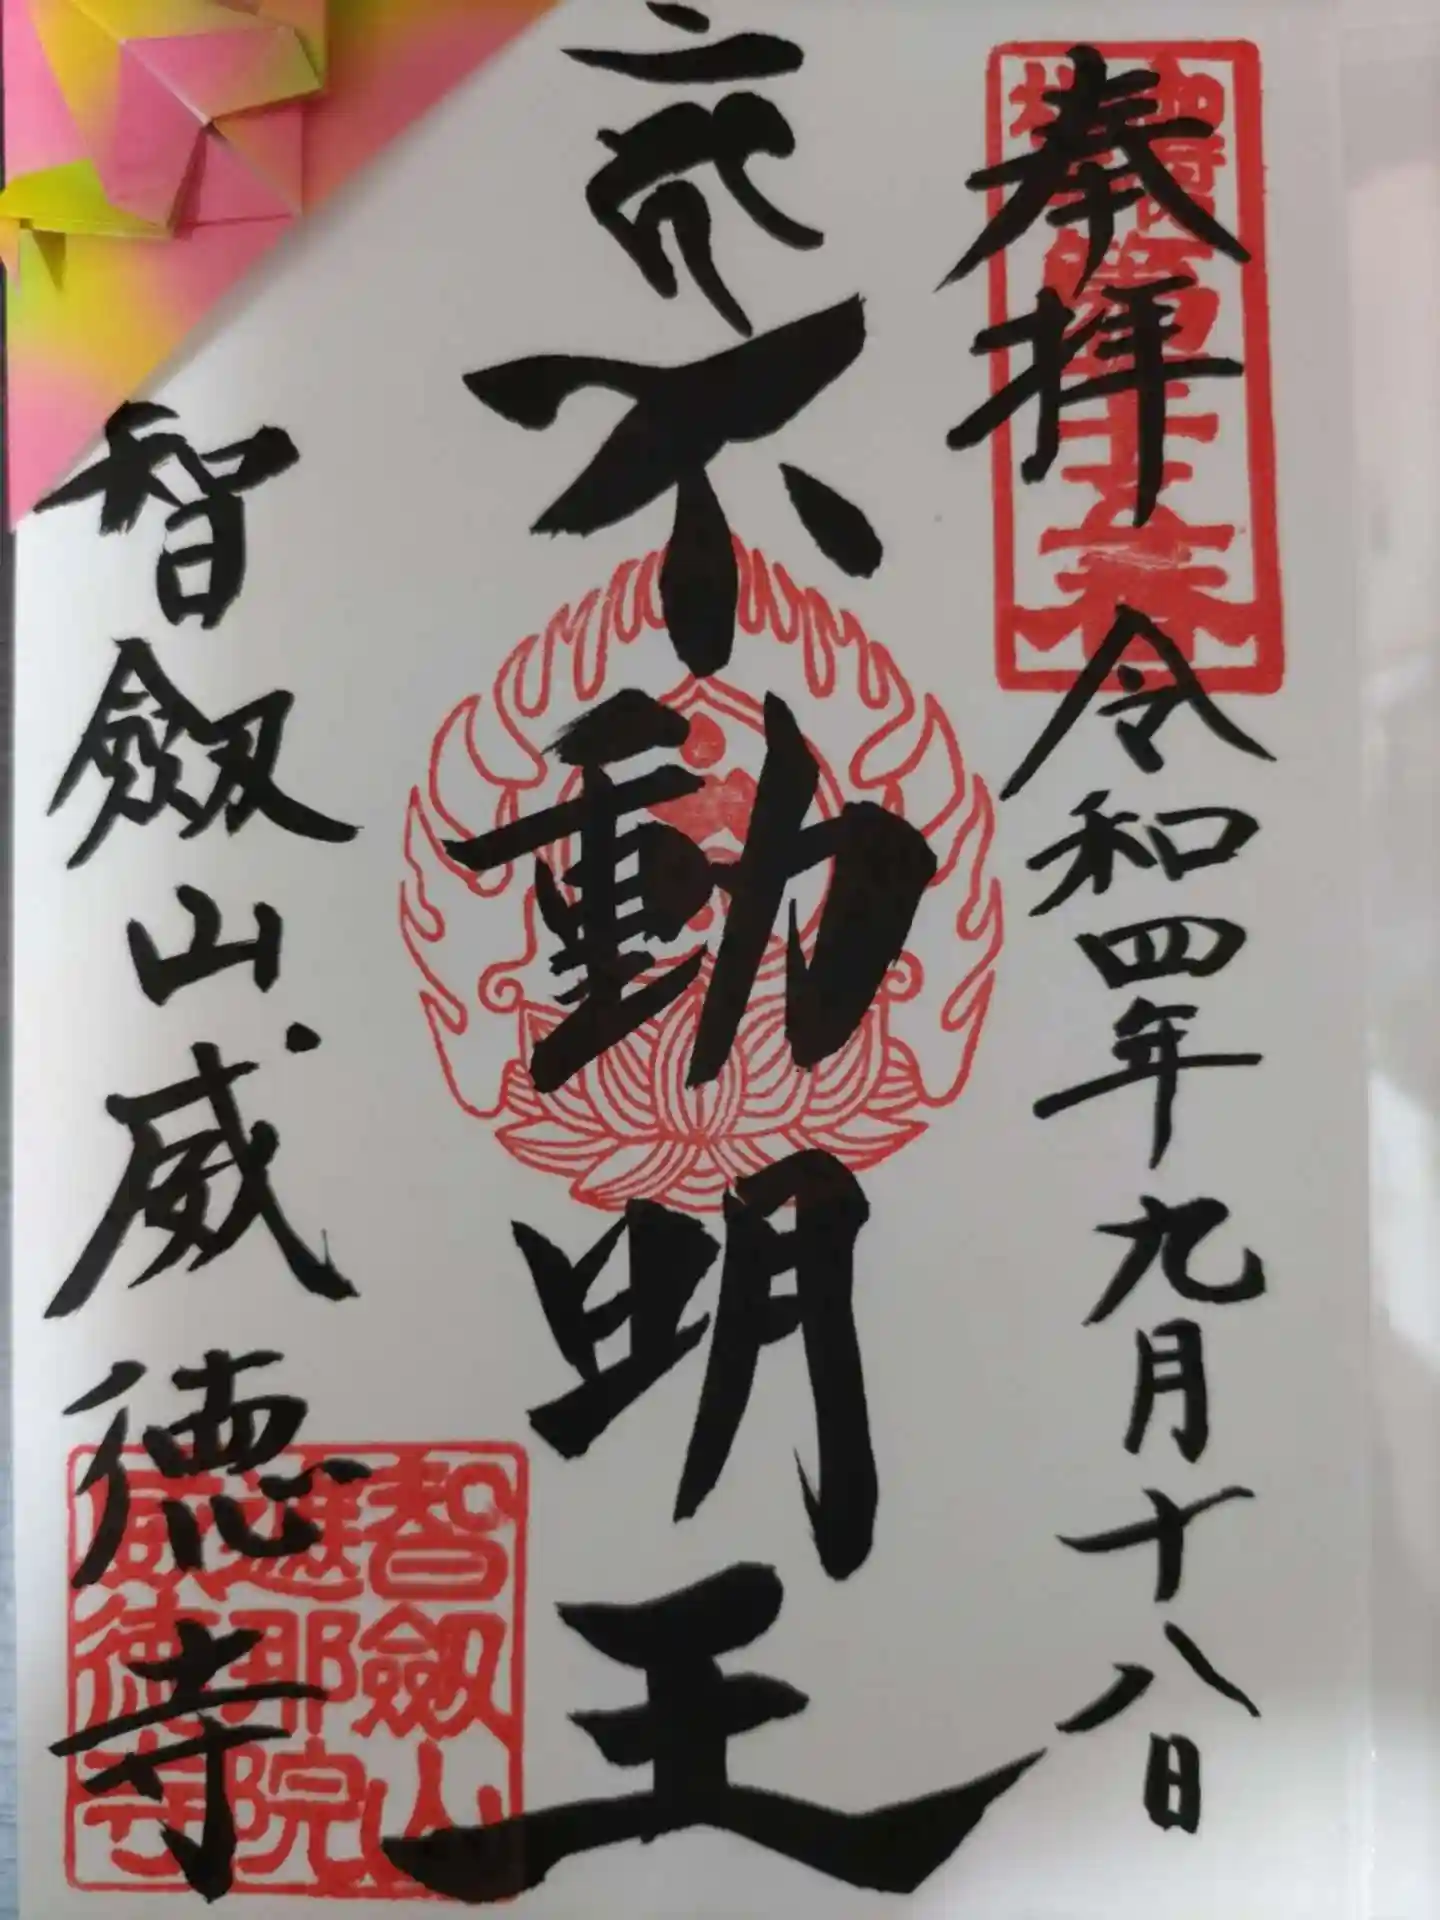 奉拝
令和四年九月十八日
不動明王
智劔山威徳寺
智劔山
遮那院
威徳寺